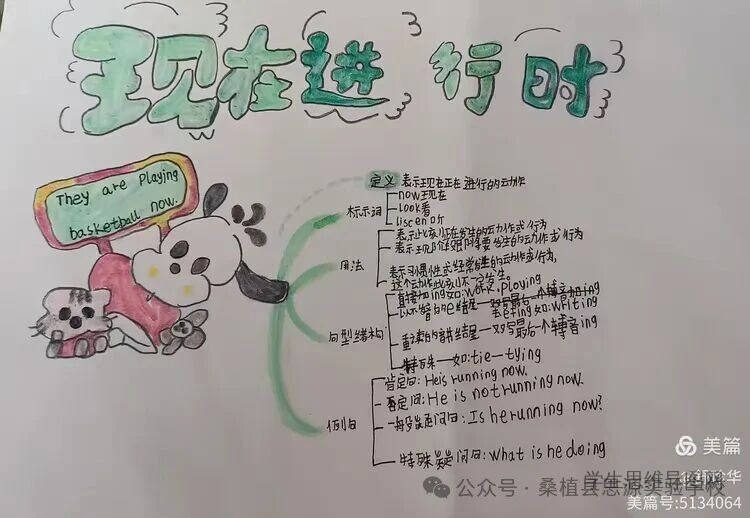 现在进行时
They are Playing
basketball now.
定义 表示现在正在进行的动作
标示词
now现在
Look看
liscen听
用法
表示此刻正在发生的动作或行为
表示现阶段
发生的动作或行为
表示习惯性或经常
的动作或行为,
这个动作此刻不一定发生。
句型结构
直接加ing如:work, Playing
以不发音的e结尾
去e加ing如:writing
重读
结尾一双写最后一个辅音ing
特殊一如:tie-tying
例句
肯定句: He is running now.
否定句: He is not running now.
一般疑问句: Is he running now?
特殊疑问句: What is he doing
美篇
学生思维导图
公众号·桑植县思源实验学校
美篇号:5134064